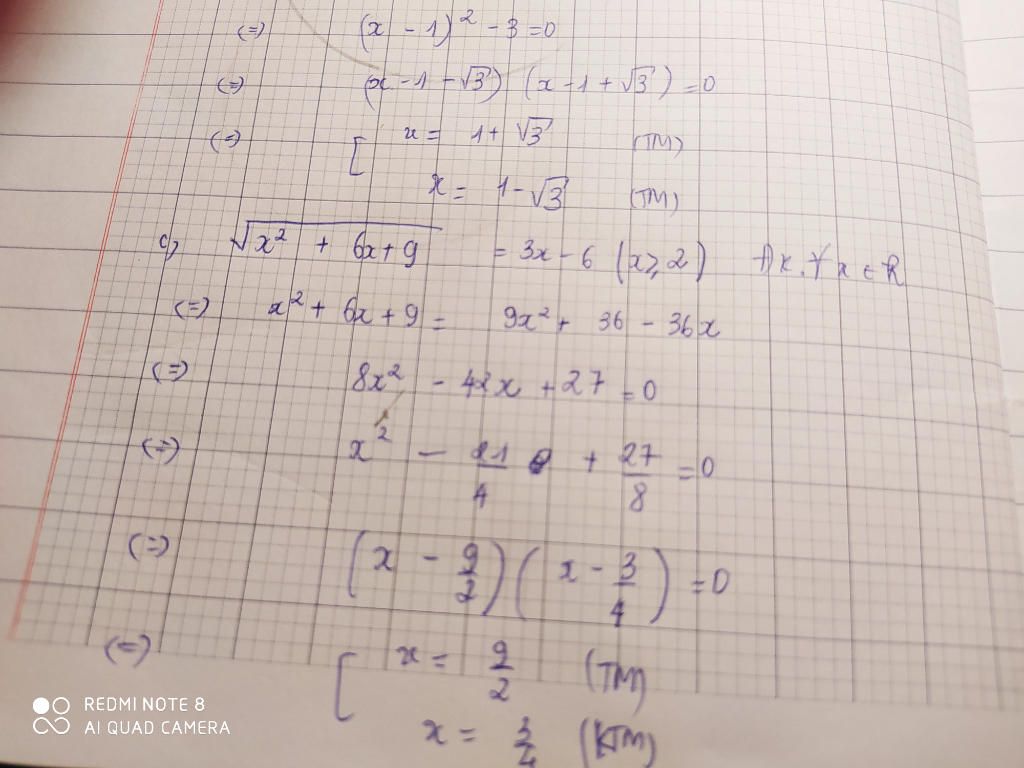 (=) (x - 1)² - 3 = 0
(=) (x - 1 - √3) (x - 1 + √3) = 0
(=) [ x = 1 + √3 (TM)
x = 1 - √3 (TM)
c) √(x² + 6x + 9) = 3x - 6 (x ≥ 2) ĐK ∀ x ∈ R
(=) x² + 6x + 9 = 9x² + 36 - 36x
(=) 8x² - 42x + 27 = 0
(=) x² - 21/4 + 27/8 = 0
(=) (x - 9/2) (x - 3/4) = 0
(=) [ x = 9/2 (TM)
x = 3/4 (KTM)
REDMI NOTE 8
AI QUAD CAMERA